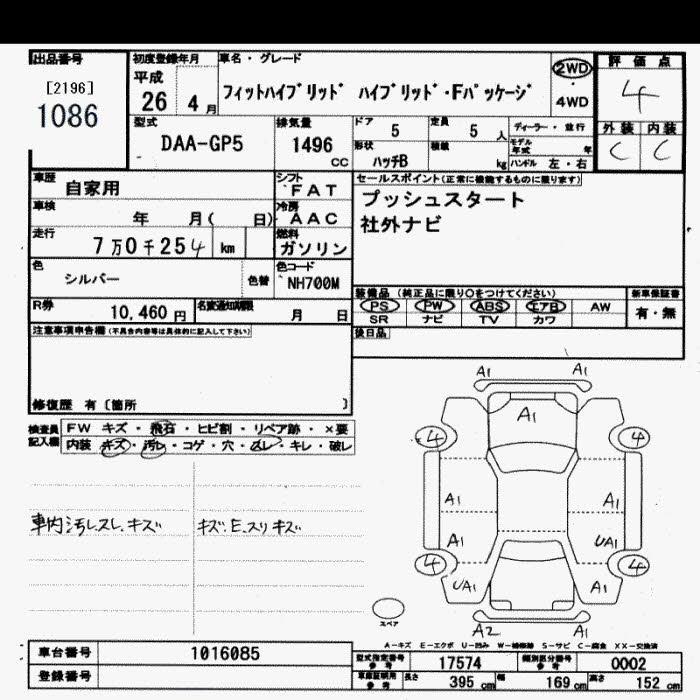 出品番号 初度登録年月 車名・グレード 評価点
[2196] 平成 2WD 4
1086 26 4月 フィットハイブリッド ハイブリッド・Fパッケージ ・
4WD
型式 排気量 ドア 定員 ディーラー・並行 外装 内装
DAA-GP5 1496 cc 5 5 人 モデル年式 年 C C
形状 積載
ハッチB kg ハンドル 左・右
車歴 自家用 シフト FAT セールスポイント(正常に機能するものに限ります)
車検 年 月( 日) 冷房 AAC プッシュスタート
走行 7万0千254 km 燃料 ガソリン 社外ナビ
色 シルバー 色替 色コード NH700M
R券 10,460円 名変通知期限 月 日
装備品 (純正品に限り○をつけてください) 新車保証書
PS PW ABS エアB AW 有・無
SR ナビ TV カワ
注意事項申告欄(不具合内容等は具体的に記入して下さい) 後日品
修復歴 有〔箇所 〕
検査員記入欄 FW キズ・飛石・ヒビ割・リペア跡・×要
内装 キズ・汚レ・コゲ・穴・スレ・キレ・破レ
車内汚レスレ.キズ キズ.E.スリキズ
A1 A1
A1
4 4
A1 A1
A1 UA1
4 4
UA1 A1
スペア
A2 A1
A-キズ E-エクボ U-凹み W-補修跡 S-サビ C-腐食 XX-交換済
車台番号 1016085
登録番号
型式指定番号 参考 17574 類別区分番号 参考 0002
車庫証明用 参考 長さ 395 cm 幅 169 cm 高さ 152 cm